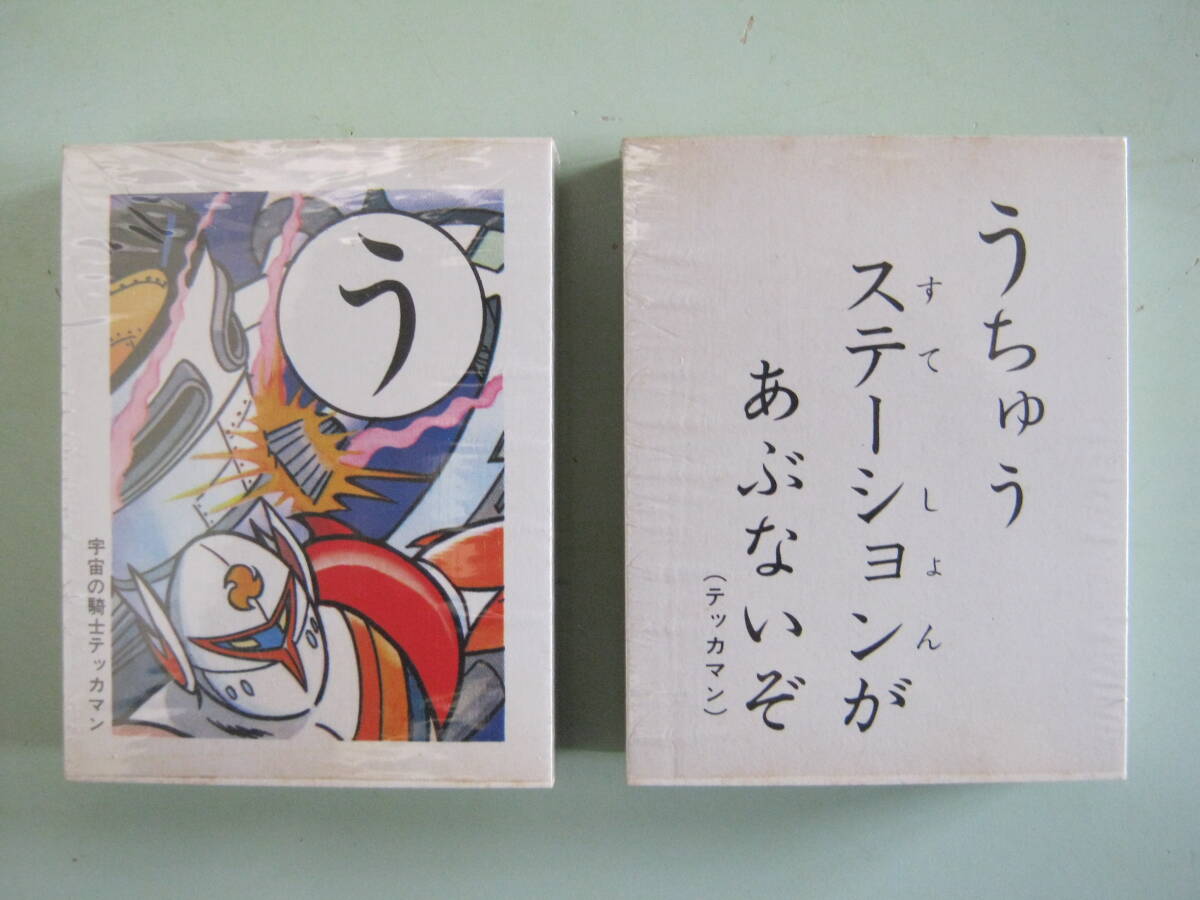 う
宇宙の騎士テッカマン
うちゅう
ステーションが
すてしょん
あぶないぞ
(テッカマン)